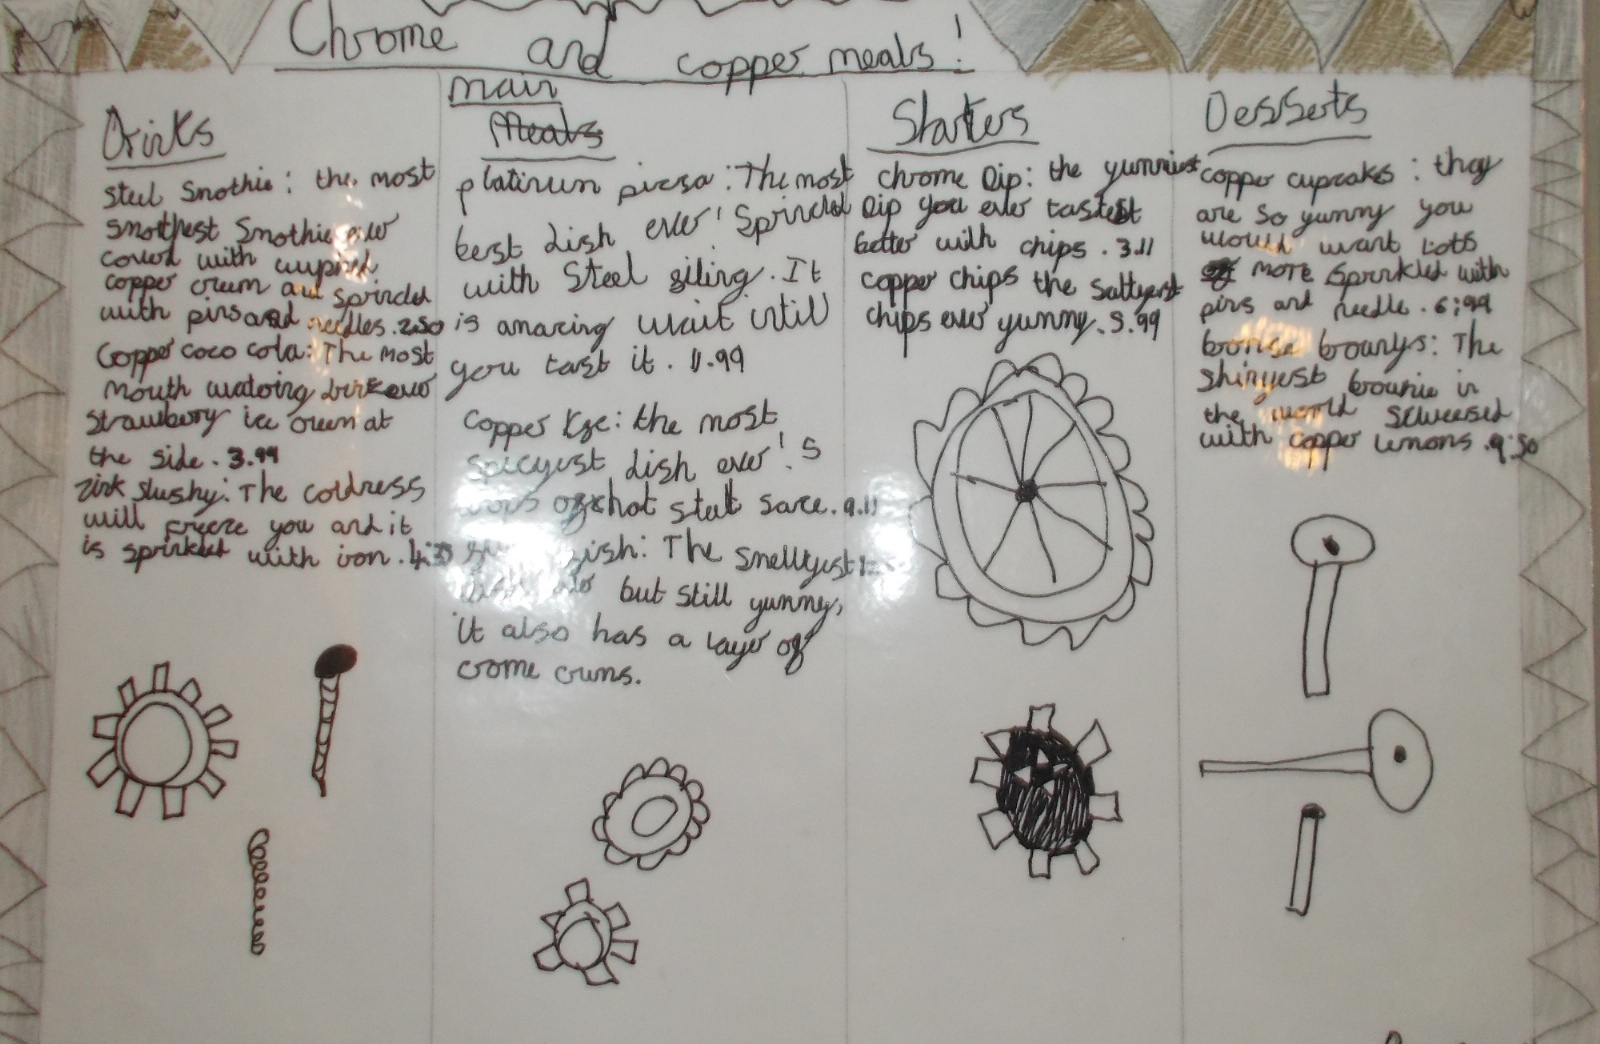 Chrome and copper meals!
Drinks
Steel Smothie: the most
smothest Smothie ever
coverd with
copper crum and sprincled
with pins and needles. 2.50
Copper coco cola: The most
mouth watoing ever
strawbery ice cream at
the side. 3.99
zink slushy: The coldness
will freeze you and it
is sprinkled with iron.
main
Meals
platinum pizza: The most
best dish ever! Sprincled
with Steel filing. It
is amazing wait intill
you tast it. 11.99
Copper the most
spicyest dish ever! 5
hot stel sace. 9.11
fish: The smellyest
but still yummy,
it also has a layer of
crome crums.
Starters
chrome Dip: the yummiest
Dip you ever tasted
better with chips. 3.11
copper chips the saltyest
chips ever yummy. 5.99
Dessserts
copper cupcakes: they
are so yummy you
would want lots
more sprinkled with
pins and needle. 6:99
bronse brounys: The
shinyest brounie in
the world scweesed
with copper lemons. 9.50